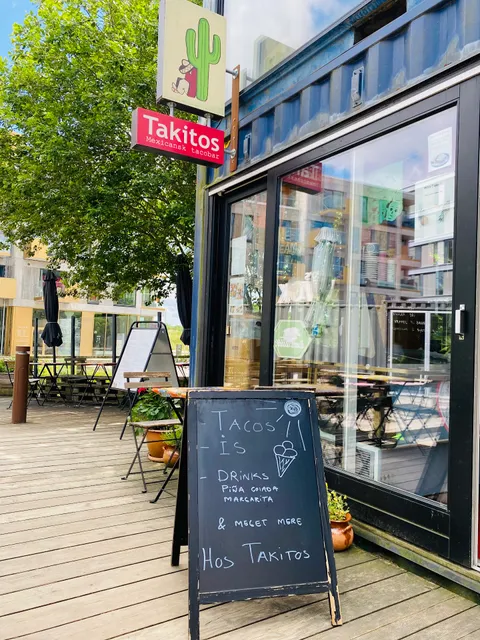 Takitos
Mexicansk tacobar
TACOS
- is
- DRINKS
PIÑA COLADA
MARGARITA
& MEGET MERE
HOS TAKITOS